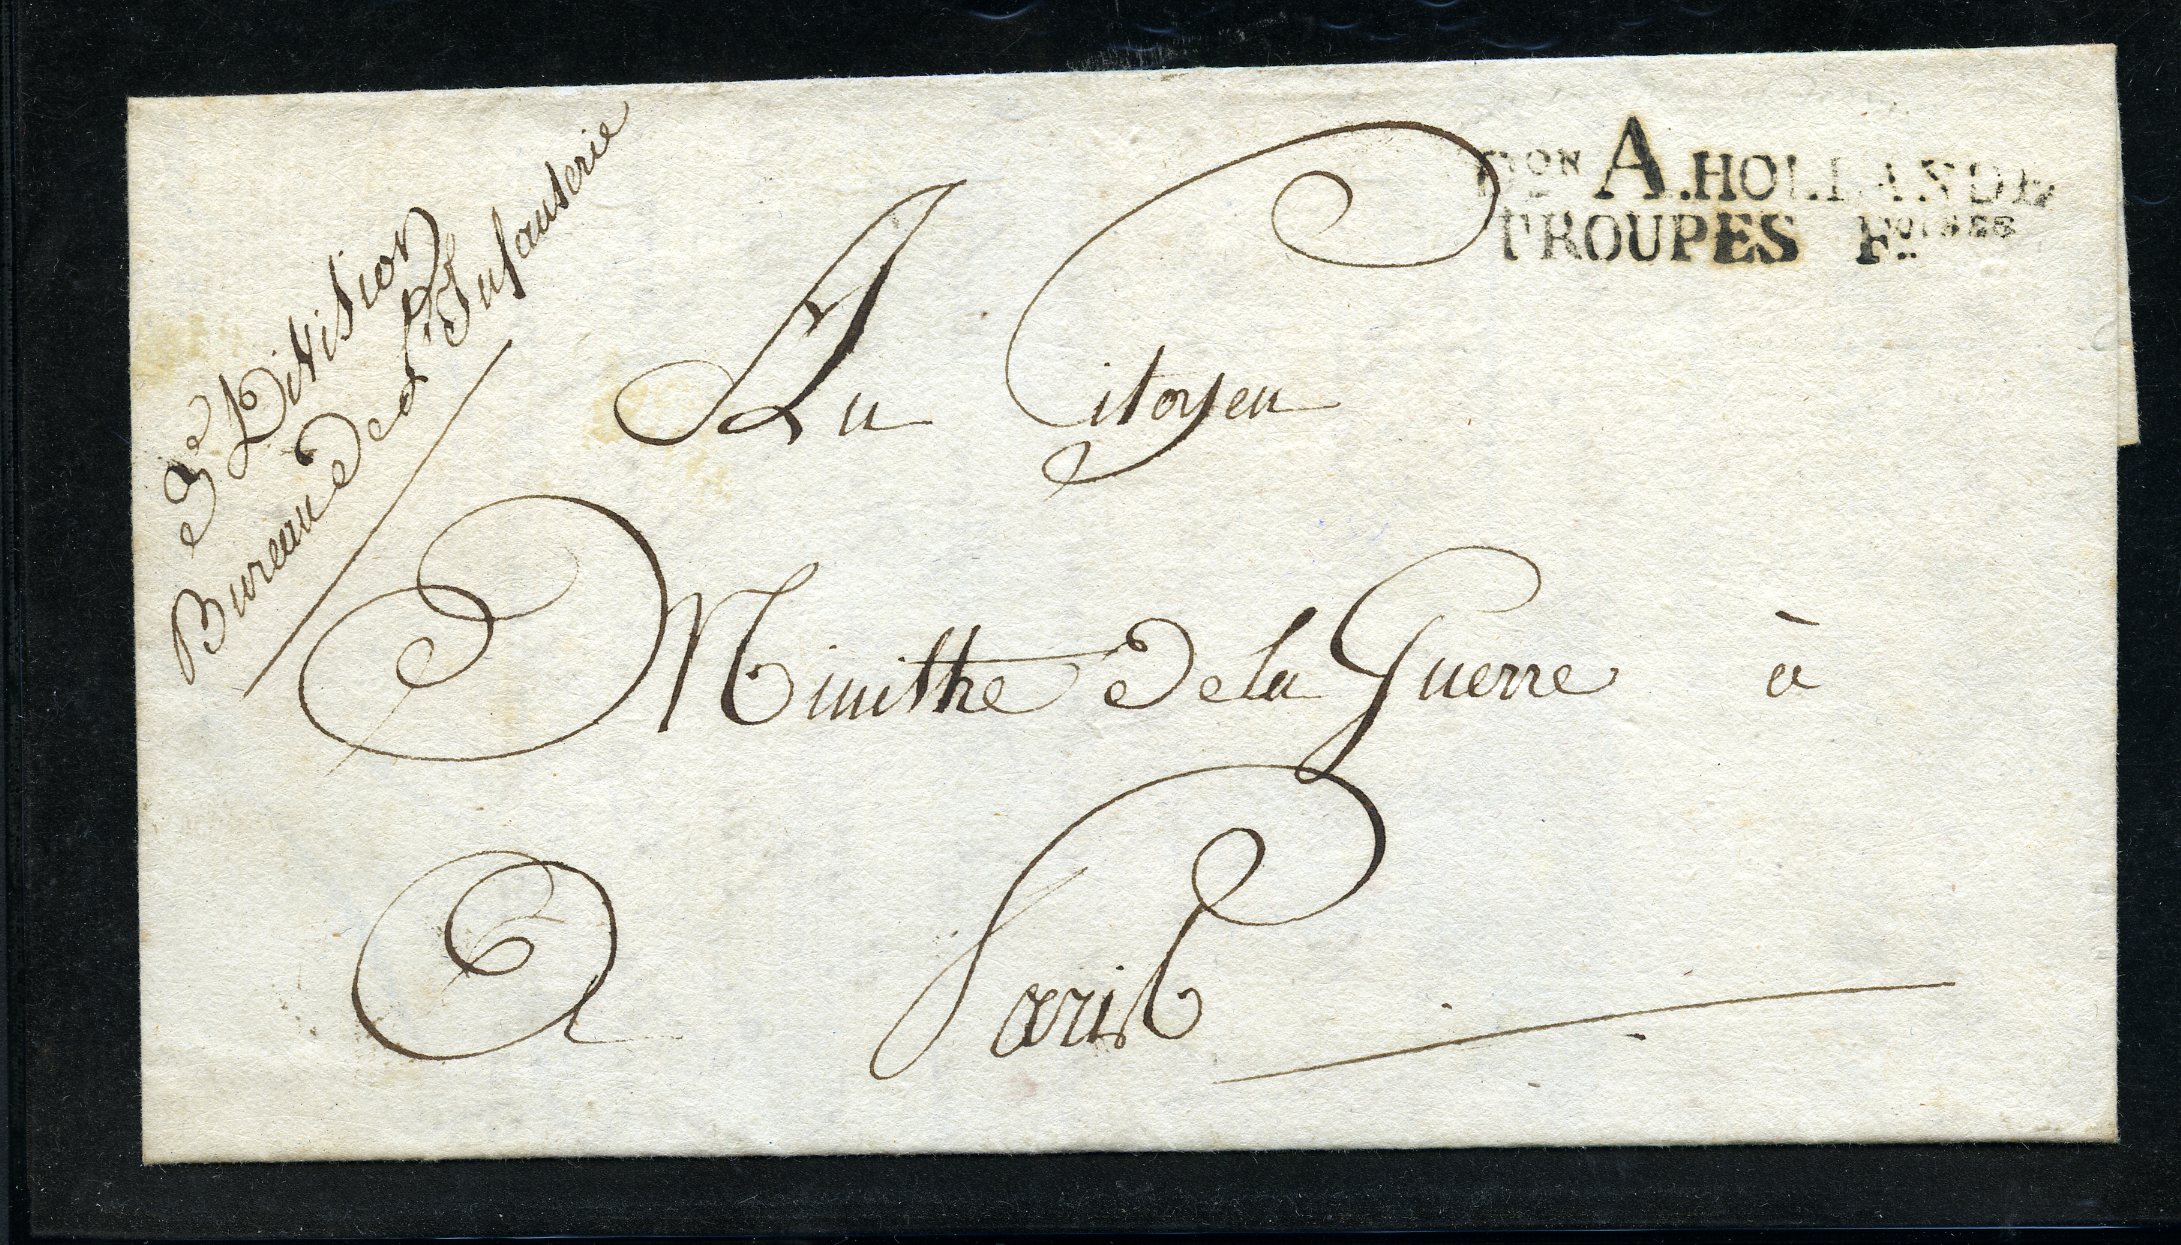 3e Division
Bureau de L'Infanterie
Don A. HOLLANDE
TROUPES F.oises
Au Citoyen
Ministre de la Guerre à
Paris